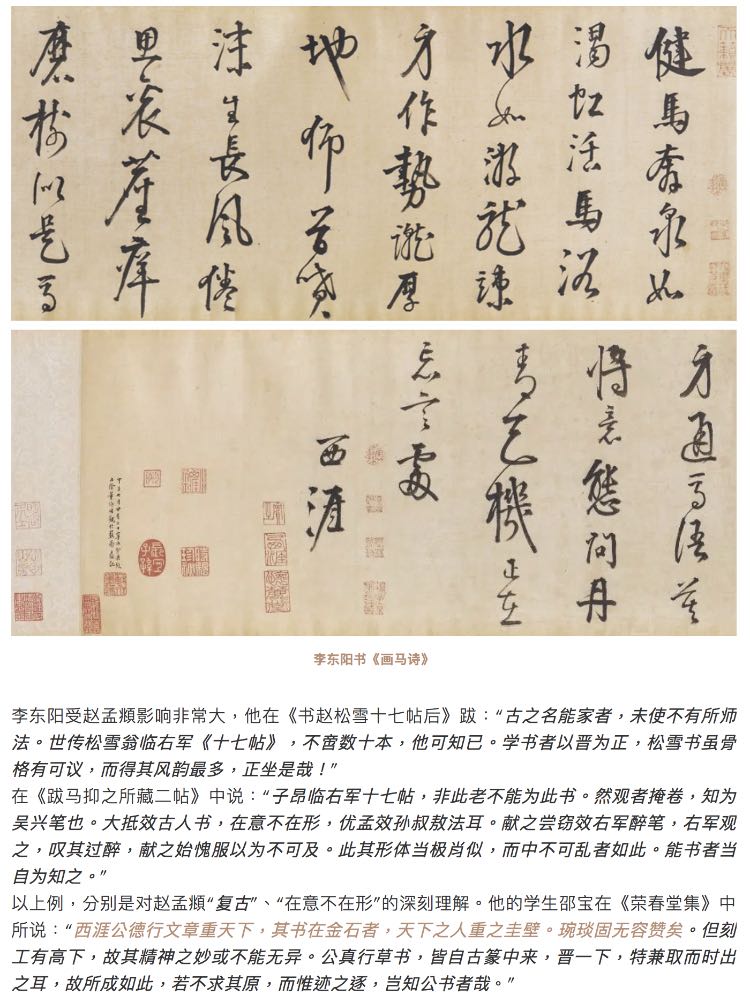 健馬奔泉如
渴虹活馬浴
水如游龍竦
身作勢厚
地首噴
沫生長風倦
思滾塵癢
磨樹似是馬
身通馬語莫
將意態問丹
青天機正在
忘言處
西涯
李东阳书《画马诗》
李东阳受赵孟頫影响非常大，他在《书赵松雪十七帖后》跋：“古之名能家者，未使不有所师
法。世传松雪翁临右军《十七帖》，不啻数十本，他可知已。学书者以晋为正，松雪书虽骨
格有可议，而得其风韵最多，正坐是哉！”
在《跋马抑之所藏二帖》中说：“子昂临右军十七帖，非此老不能为此书。然观者掩卷，知为
吴兴笔也。大抵效古人书，在意不在形，优孟效孙叔敖法耳。献之尝窃效右军醉笔，右军观
之，叹其过醉，献之始愧服以为不可及。此其形体当极肖似，而中不可乱者如此。能书者当
自为知之。”
以上例，分别是对赵孟頫“复古”、“在意不在形”的深刻理解。他的学生邵宝在《荣春堂集》中
所说：“西涯公德行文章重天下，其书在金石者，天下之人重之圭璧。琬琰固无容赞矣。但刻
工有高下，故其精神之妙或不能无异。公真行草书，皆自古篆中来，晋一下，特兼取而时出
之耳，故所成如此，若不求其原，而惟迹之逐，岂知公书者哉。”